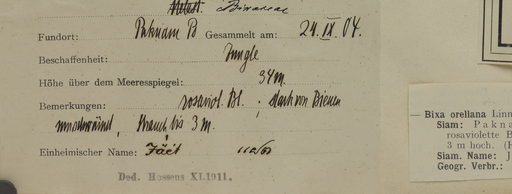 Bixaceae
Fundort: Paknam P Gesammelt am: 24. IX. 04.
Beschaffenheit: Jungle
Höhe über dem Meeresspiegel: 34 m.
Bemerkungen: rosaviol. Bl. ; stark von Bienen
umschwärmt, Strauch bis 3 m.
Einheimischer Name:
Ded. Hosseus XI.1911.
Bixa orellana Linn
Siam: Pakna
rosaviolette B
3 m hoch. (H
Siam. Name: J
Geogr. Verbr.: